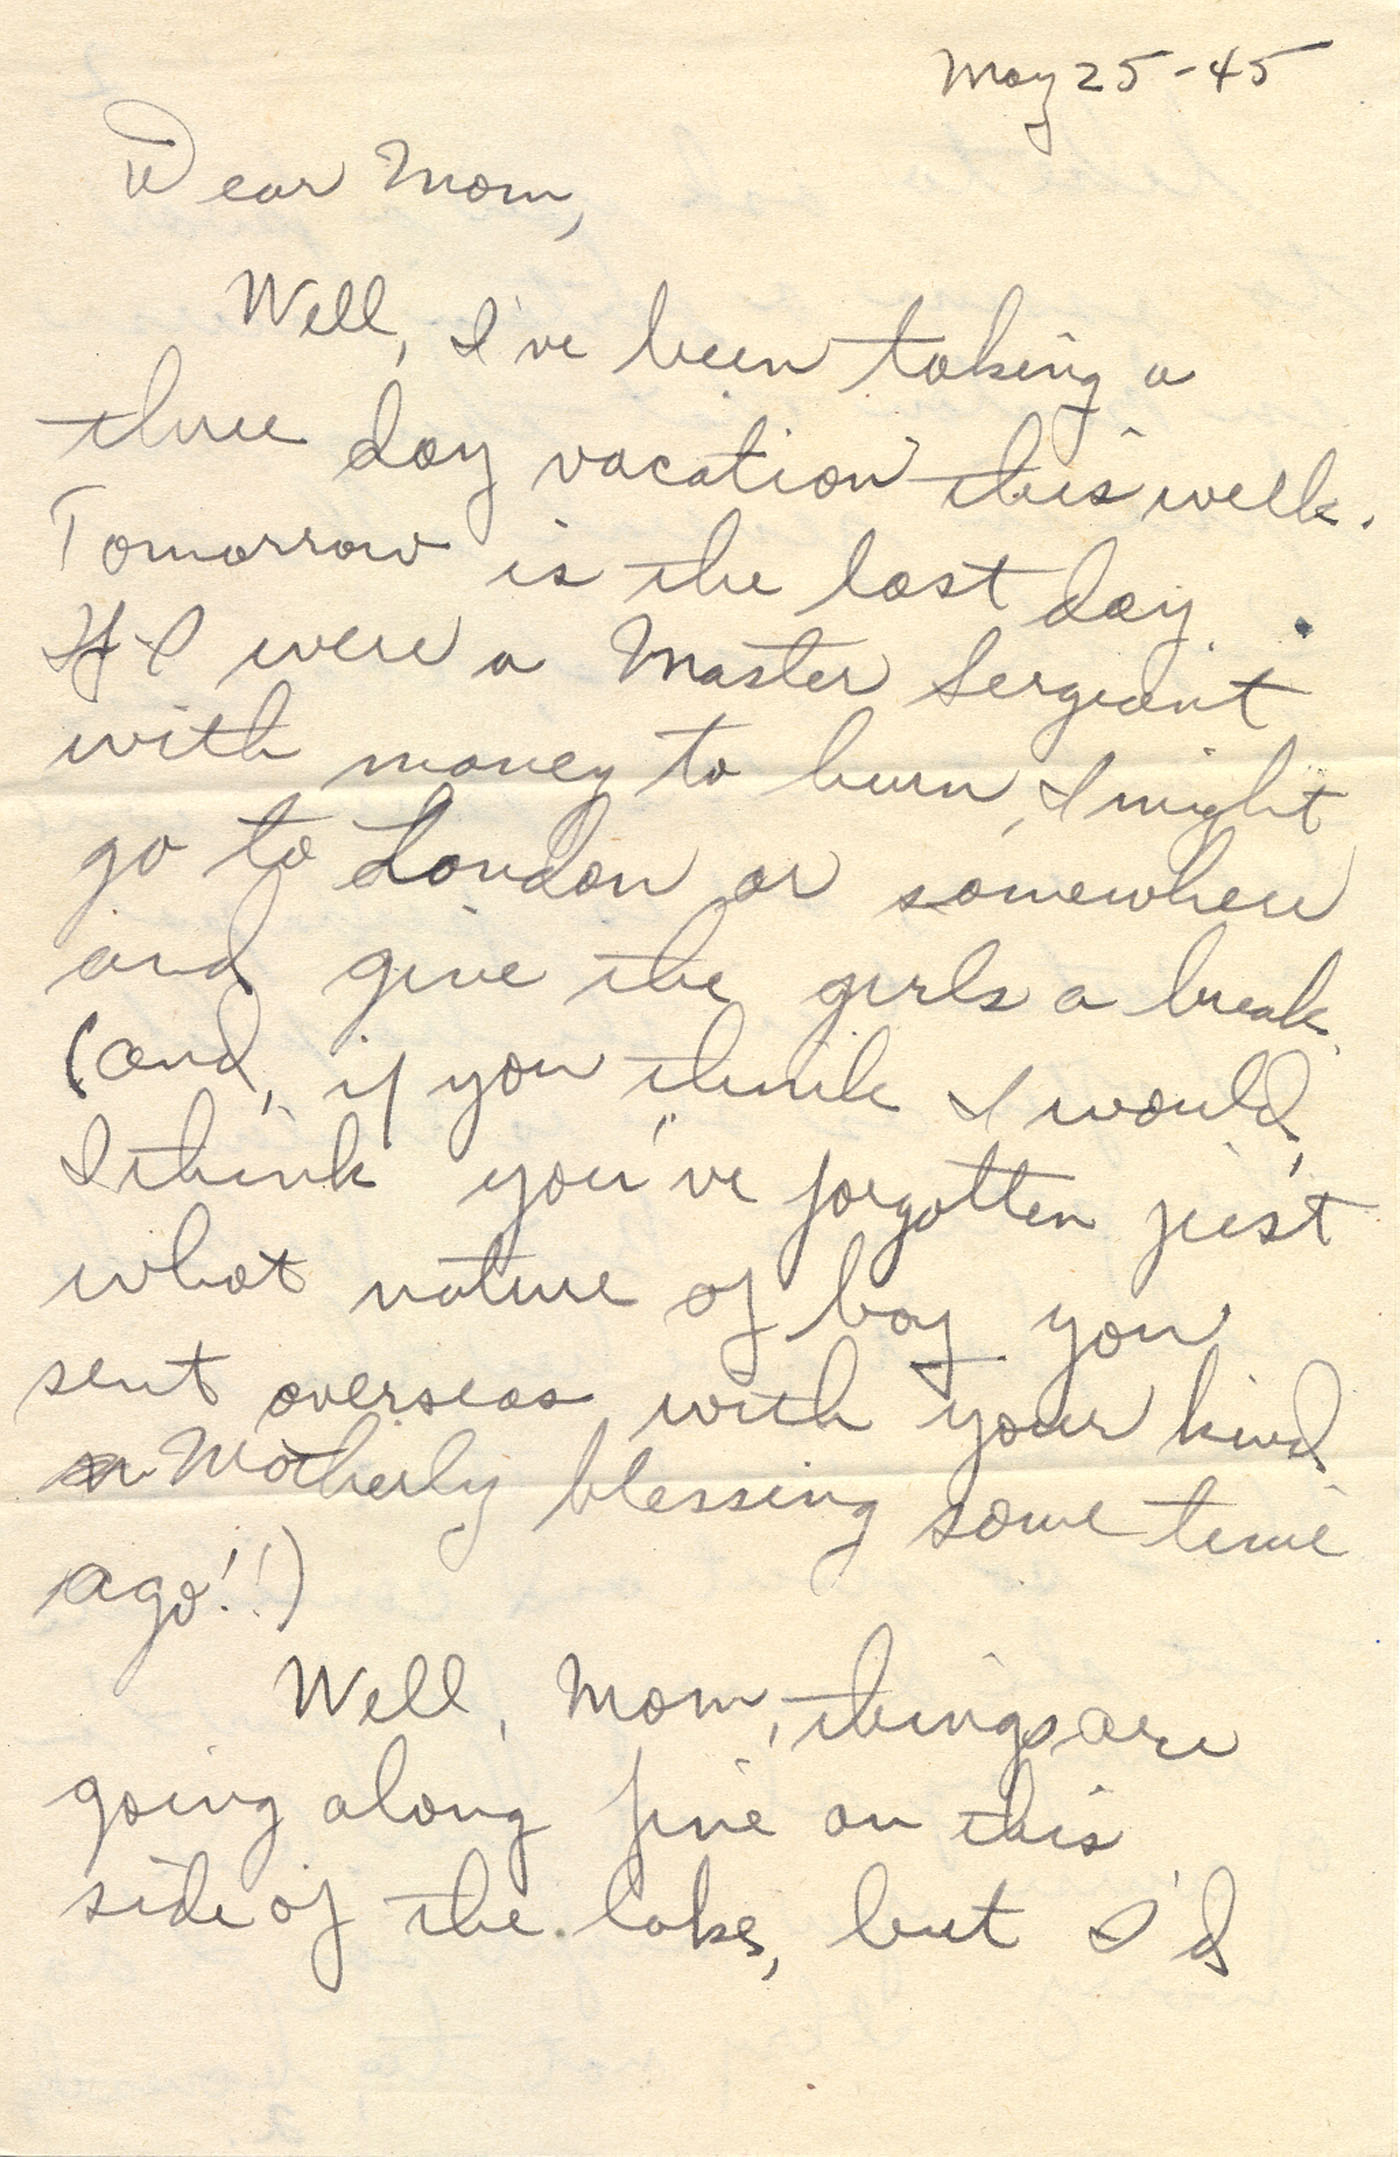 May 25-45
Dear Mom,
Well, I've been taking a
three day vacation this week.
Tomorrow is the last day.
If I were a Master Sergeant
with money to burn, I might
go to London or somewhere
and give the girls a break.
(and, if you think I would,
I think you've forgotten just
what nature of boy you
sent overseas with your kind
Motherly blessing some time
ago!!)
Well, Mom, things are
going along fine on this
side of the lake, but I'd